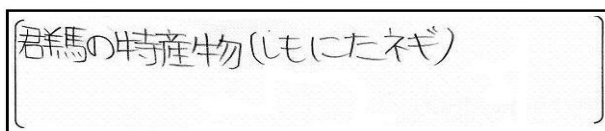 群馬の特産物(しもにたネギ)